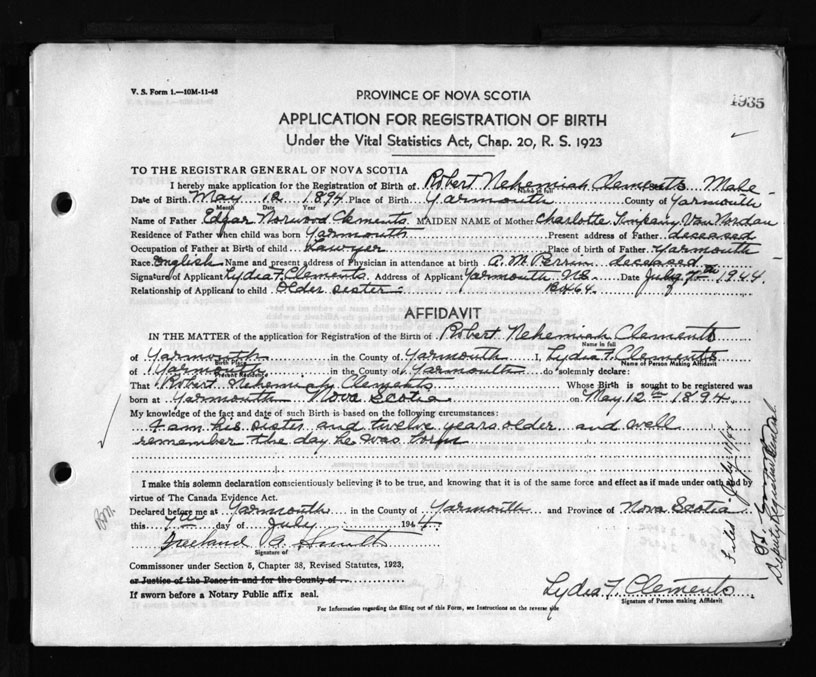 V. S. Form 1.—10M-11-43
PROVINCE OF NOVA SCOTIA
1935
APPLICATION FOR REGISTRATION OF BIRTH
Under the Vital Statistics Act, Chap. 20, R. S. 1923
TO THE REGISTRAR GENERAL OF NOVA SCOTIA
I hereby make application for the Registration of Birth of Robert Nehemiah Clements Male
Name in full
Date of Birth May 12 1894 Place of Birth Yarmouth County of Yarmouth
Month Date Year
Name of Father Edgar Norwood Clements MAIDEN NAME of Mother Charlotte Van Nordan
Residence of Father when child was born Yarmouth Present address of Father deseased
Occupation of Father at Birth of child Lawyer Place of birth of Father Yarmouth
Race English Name and present address of Physician in attendance at birth A. M. Perrin deseased
Signature of Applicant Lydia F. Clements Address of Applicant Yarmouth N.S. Date July 7th 1944
Relationship of Applicant to child Older sister Box 64
AFFIDAVIT
IN THE MATTER of the application for Registration of the Birth of Robert Nehemiah Clements
Name in full
of Yarmouth in the County of Yarmouth I, Lydia F. Clements
Birth Place Name of Person Making Affidavit
of Yarmouth in the County of Yarmouth do solemnly declare:
Present Residence
That Robert Nehemiah Clements Whose Birth is sought to be registered was
born at Yarmouth Nova Scotia on May 12th 1894.
My knowledge of the fact and date of such Birth is based on the following circumstances:
I am his sister and twelve years older and well
remember the day he was born
I make this solemn declaration conscientiously believing it to be true, and knowing that it is of the same force and effect as if made under oath and by
virtue of The Canada Evidence Act.
Declared before me at Yarmouth in the County of Yarmouth and Province of Nova Scotia
this 7th day of July 1944.
Signature of
Commissioner under Section 5, Chapter 38, Revised Statutes, 1923,
or Justice of the Peace in and for the County of
If sworn before a Notary Public affix seal.
Lydia F. Clements
Signature of Person making Affidavit
For Information regarding the filling out of this Form, see Instructions on the reverse side
Filed July 11/44
Deputy Registrar General